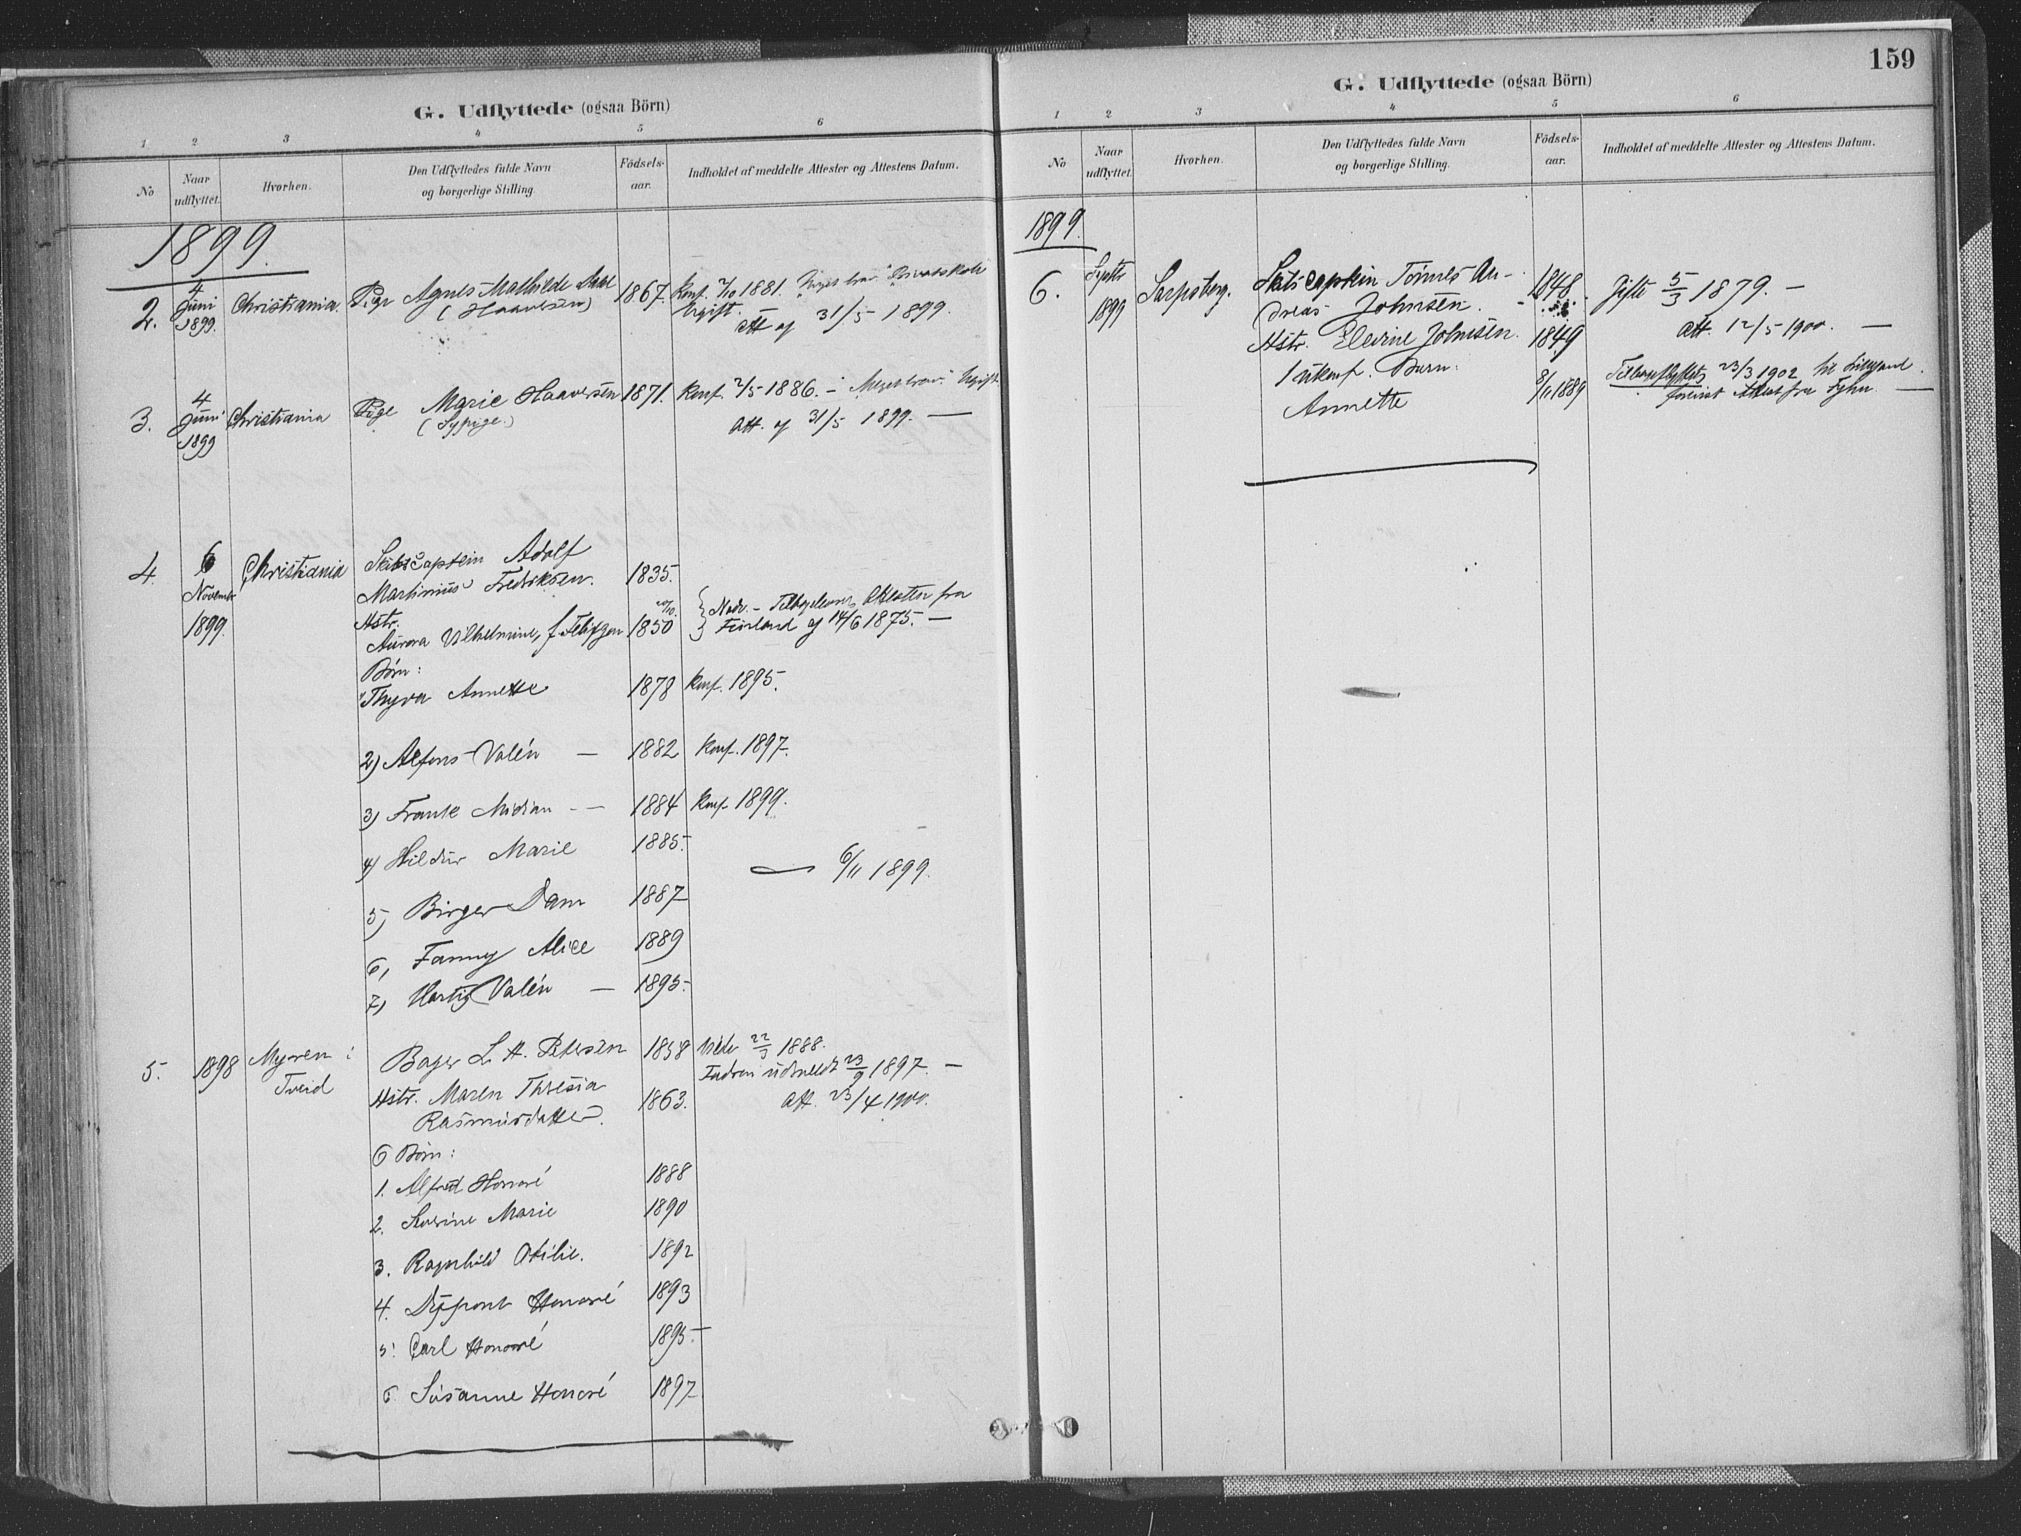 G. Udflyttede (ogsaa Börn)
1 2 3 4 5 6
No
Naar udflyttet.
Hvorhen.
Den Udflyttedes fulde Navn og borgerlige Stilling.
Födsels-aar.
Indholdet af meddelte Attester og Attestens Datum.
1899.
2. 4 Juni 1899. Christiania. Pige Agnes Mathilde 1867. Konf. 1881.
(Haaversen) Ugift.
Att. af 31/5 1899.
3. 4 Juni 1899 Christiania Pige Marie Haaversen 1871. Konf. 2/5 1886. – Meget brav. Ugift.
(Sypige.) Att. af 31/5 1899. —
4. 6 Novembr 1899. Christiania Skibscaptein Adolf
Martinius Fredriksen. 1835.
Hstr.
Aurora Vilhelmine, f. 1850
Finland af 14/6 1875. —
Børn:
1) Thyra Annette 1878 Konf. 1895.
2) Alfons Valén — 1882 Konf. 1897.
3) Frank Midian — 1884 Konf. 1899.
4) Hildur Marie 1885.
— 6/11 1899.
5) Birger Dam 1887
6, Fanny Alice 1889
7, Hartig Valén — 1895.
5. 1898 Myren i Tveid Bager L. A. Petersen 1858 1888.
1897. —
Hstr. Maren Thresia
Rasmusdatter. 1863. Att. 23/4 1900.
6 Børn:
1. Alfred Honoré 1888
2. Severine Marie 1890
3. Ragnhild Otilie. 1892
4. Honoré 1893
5. Carl Honoré 1895.
6. Susanne Honoré 1897
159
G. Udflyttede (ogsaa Börn)
1 2 3 4 5 6
No
Naar udflyttet.
Hvorhen.
Den Udflyttedes fulde Navn og borgerlige Stilling.
Födsels-aar.
Indholdet af meddelte Attester og Attestens Datum.
1899.
6. Septbr 1899 Sarpsborg. Skibscaptein Tönnes An-
dreas Johnsen. 1848. Gifte 5/3 1879. –
Hstr. Elevine Johnsen. 1849 Att. 12/5 1900. —
1 ukonf. Barn:
Annette 8/11 1889 Tilbageflyttet 23/3 1902 til Lillesand.